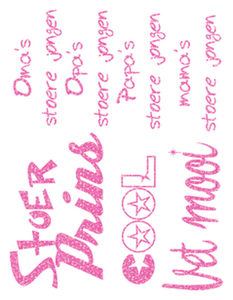 StOER
Prins
COOL
Vet mooi
Oma's
stoere jongen
Opa's
stoere jongen
Papa's
stoere jongen
mama's
stoere jongen